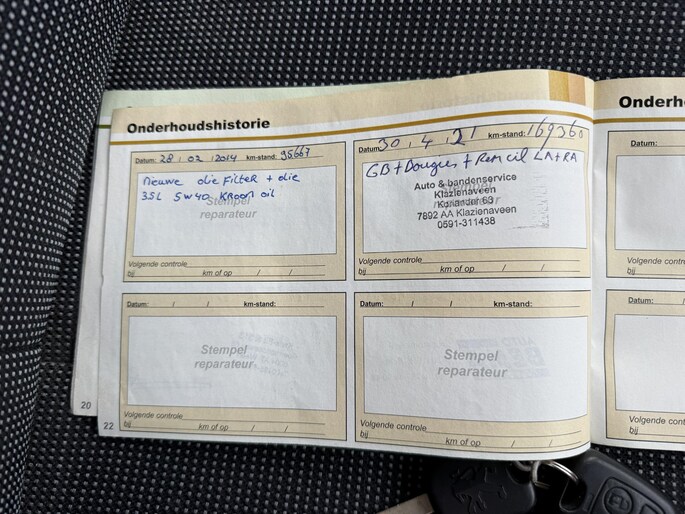 Onderhoudshistorie
Datum: 28 / 02 / 2014 km-stand: 95667
nieuwe olie Filter + olie
3.5L 5W40 Kroon oil
Stempel
reparateur
Volgende controle
bij km of op / /
Datum: 30 . 4 . 21 km-stand: 169360
GB + Bougies + Rem cil LA+RA
Stempel
Auto & bandenservice
Klazienaveen
Koriander 63
7892 AA Klazienaveen
0591-311438
Volgende controle
bij km of op / /
Datum: / / km-stand:
Stempel
reparateur
Volgende controle
bij km of op / /
Datum: / / km-stand:
Stempel
reparateur
Volgende controle
bij km of op / /
20
22
Onderh
Datum:
Volgende
bij
Datum: /
Volgende cont
bij